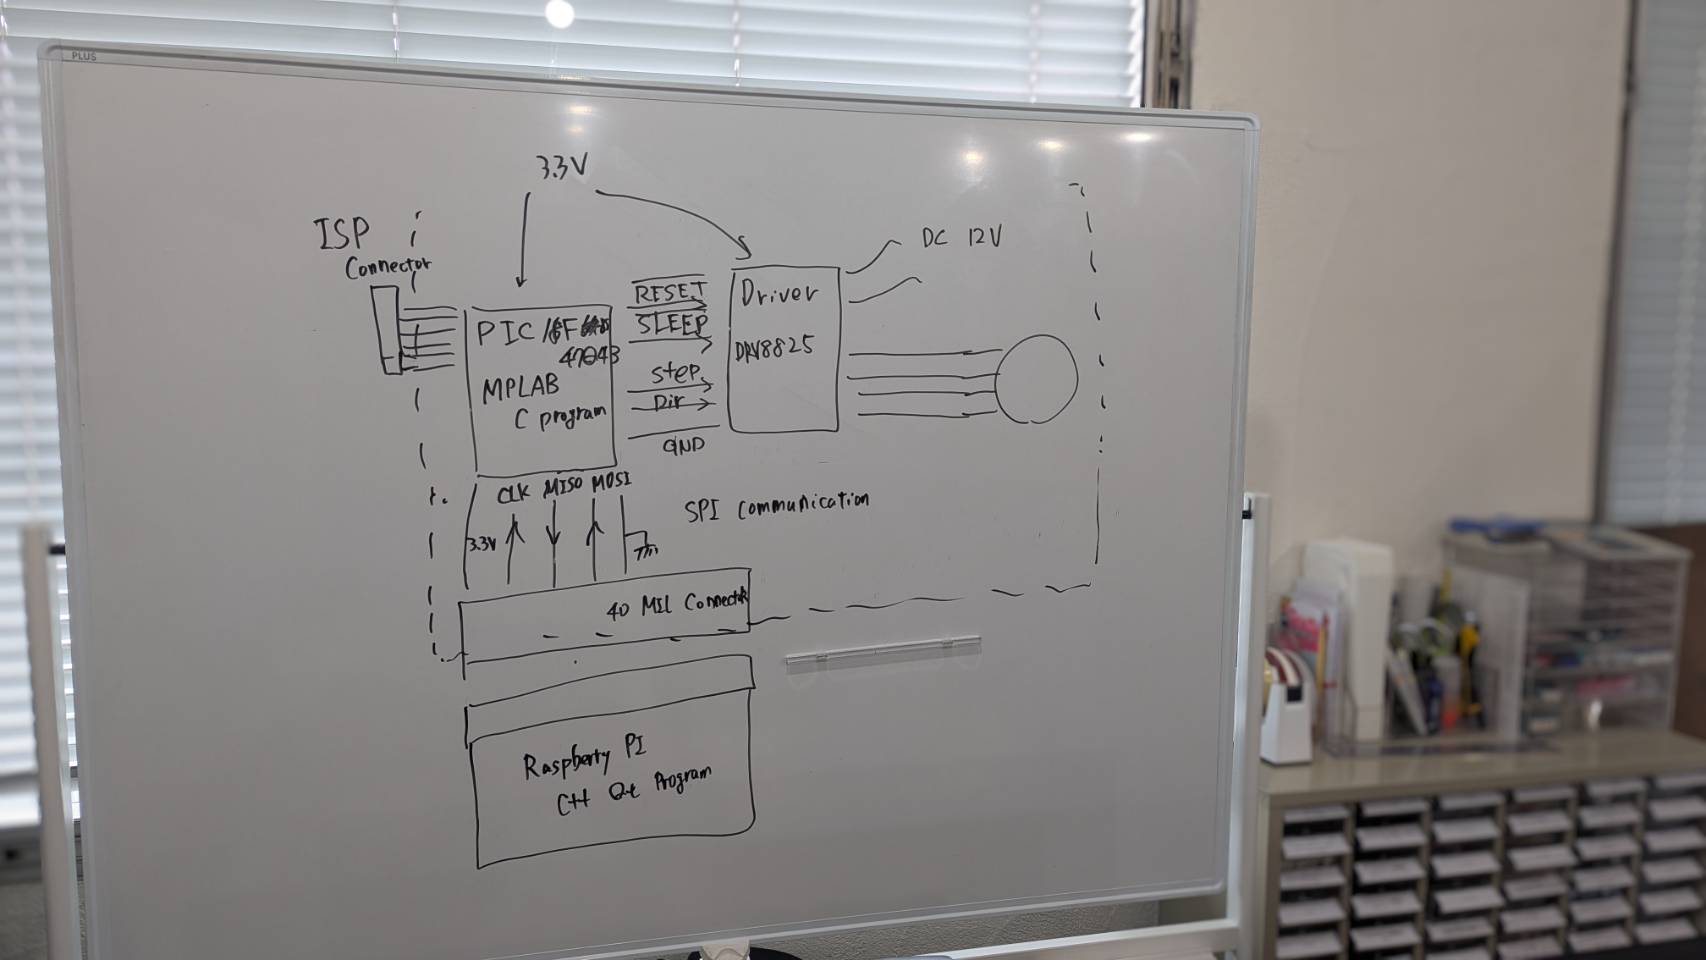 PLUS
3.3V
ISP
Connector
DC 12V
RESET
SLEEP
Step
Dir
GND
PIC 16F
MPLAB
C program
Driver
DRV8825
CLK MISO MOSI
3.3V
SPI Communication
40 MIL Connector
Raspberry PI
C++ Qt Program